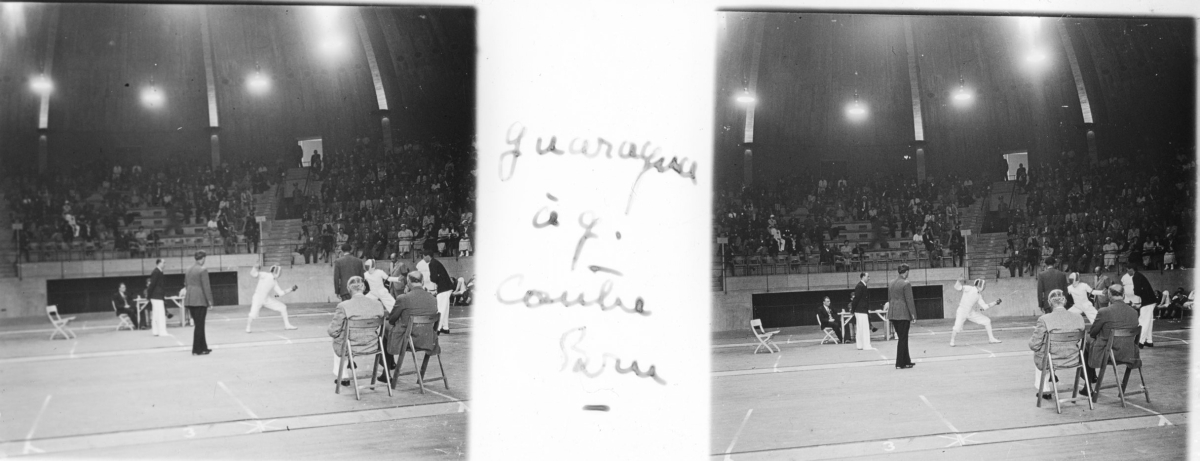 guaragna
à g.
contre
3
3